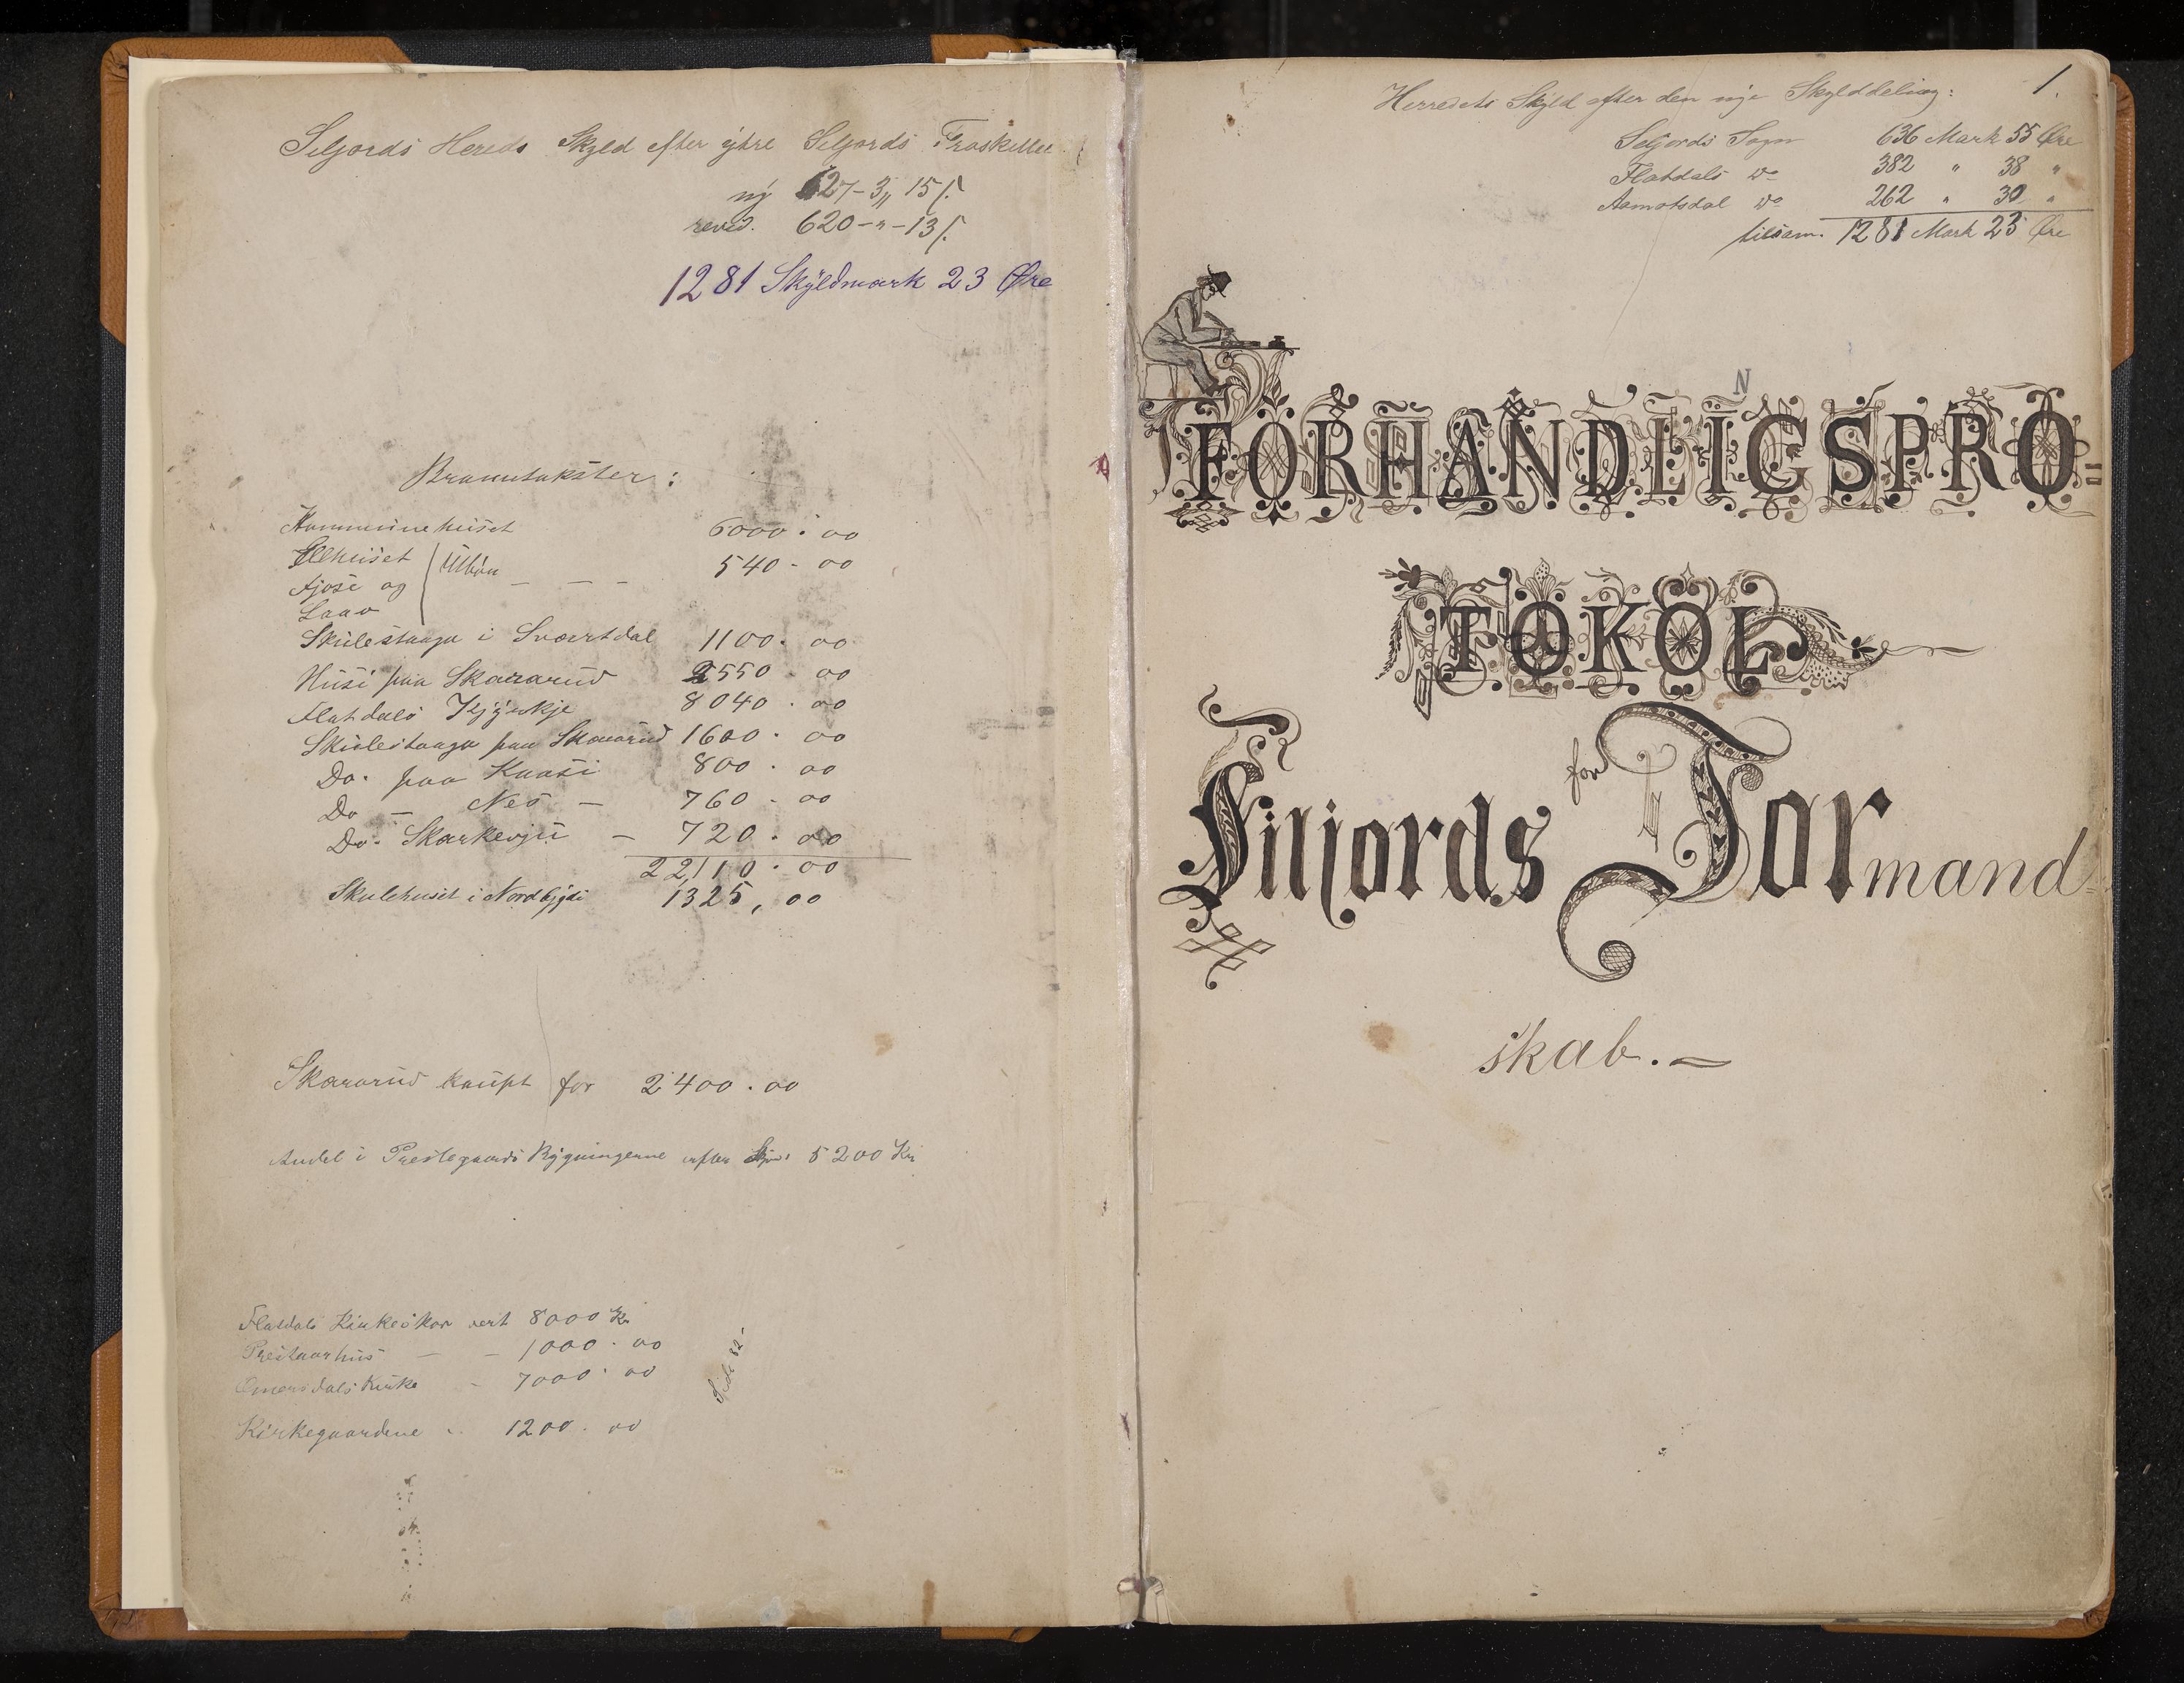 Seljords Hereds Skyld efter ytre Seljords Fraskillelse
ny 627-3,, 15 ſ.
revid. 620-"-13 ſ.
1281 Skyldmark 23 Øre
Branntakster:
Kommunehuset 6000 . 00
Ellhuset
Fjøse og Utbøu - - - 540 - 00
Laao
Skulestaaga i Svartdal 1100 . 00
Husi paa Skararud 2550 . 00
Flatdals Kjyrkje 8040 . 00
Skulestaaga paa Skararud 1600 . 00
Do. paa Kaasi 800 . 00
Do - Nes - 760 . 00
Do. Skarkevju - 720 . 00
22,110 . 00
Skulehuset i Nordbygdi 1325, 00
Skararud kaupt for 2400 . 00
Andel i Prestegaards Bygningerne efter 5200 Kr
Flatdals Kirke vert 8000 Kr
Prestaarhus - - 1000 . 00
Omotsdals Kirke - 7000 . 00
Kirkegaardene " 1200 . 00
Side 82
1.
Herredets Skyld efter den nye Skylddeling:
Seljords Sogn 636 Mark 55 Øre
Flatdals do 382 " 38 "
Aamotsdal do 262 " 30 "
tilsam. 1281 Mark 23 Øre
N
FORHANDLIGSPRO=
TOKOL
for
Siljords Formand=
skab. —